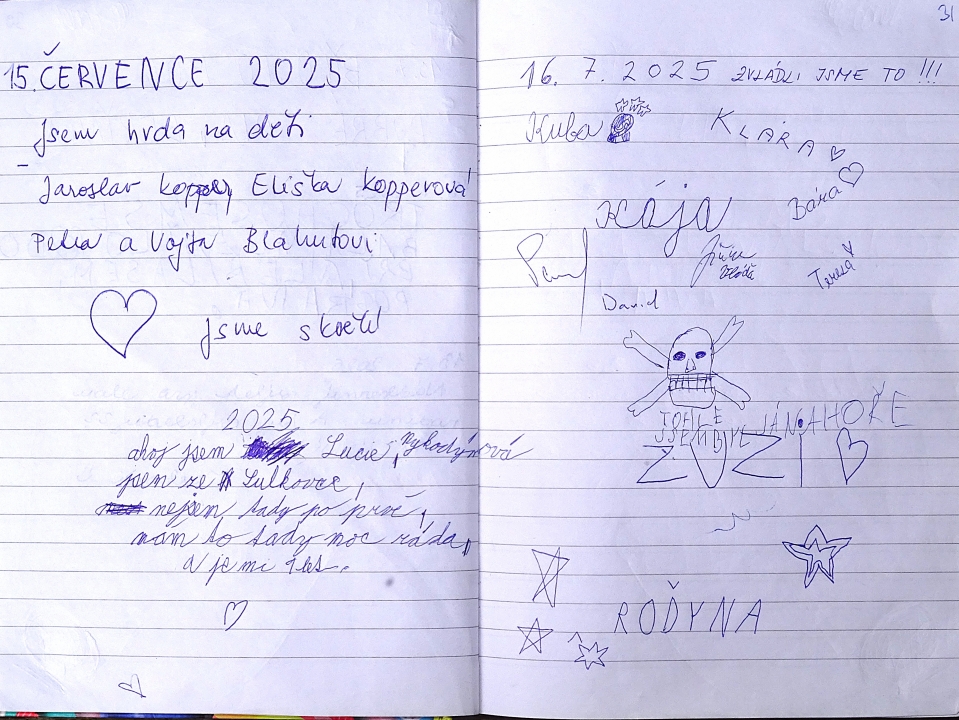 15. ČERVENCE 2025
Jsem hrda na děti
Jaroslav Eliška Kopperová
Petra a Vojta Blahutovi
Jsme skvělí
2025
ahoj jsem Lucie Vykodýnová
jsem ze Sulkovce,
nejsem tady po prvé,
mám to tady moc ráda,
a je mi let.
31
16. 7. 2025 ZVLÁDLI JSME TO !!!
Kuba
KLÁRA
Kája
Bára
David
Tereza
TOHLE
JSEM BYL JÁ NAHOŘE
RODYŇA